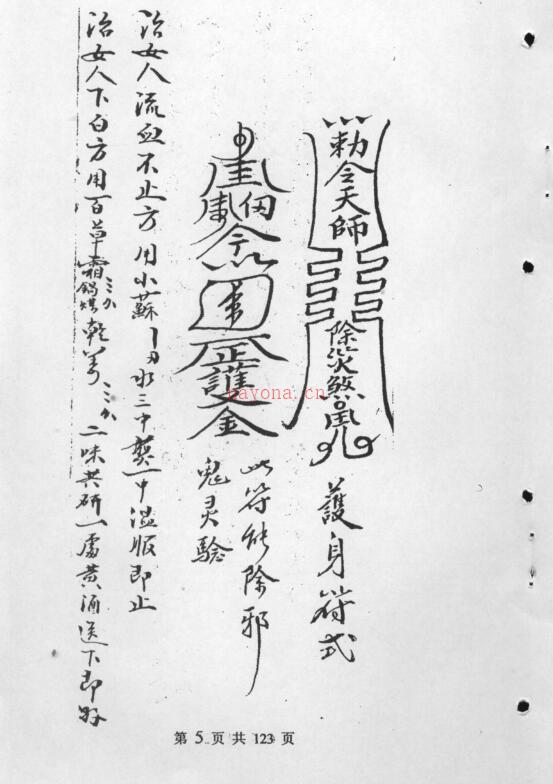 勅令天師
除災煞鬼
護身符式
此符能除邪
鬼灵驗
護
金
治女人流血不止方用小蘇一刃水三中煎一中温服即止
治女人下白方用百草霜鍋煤三分乾姜三分二味共研一處黄酒送下即好
nayona.cn
第 5 页 共 123 页